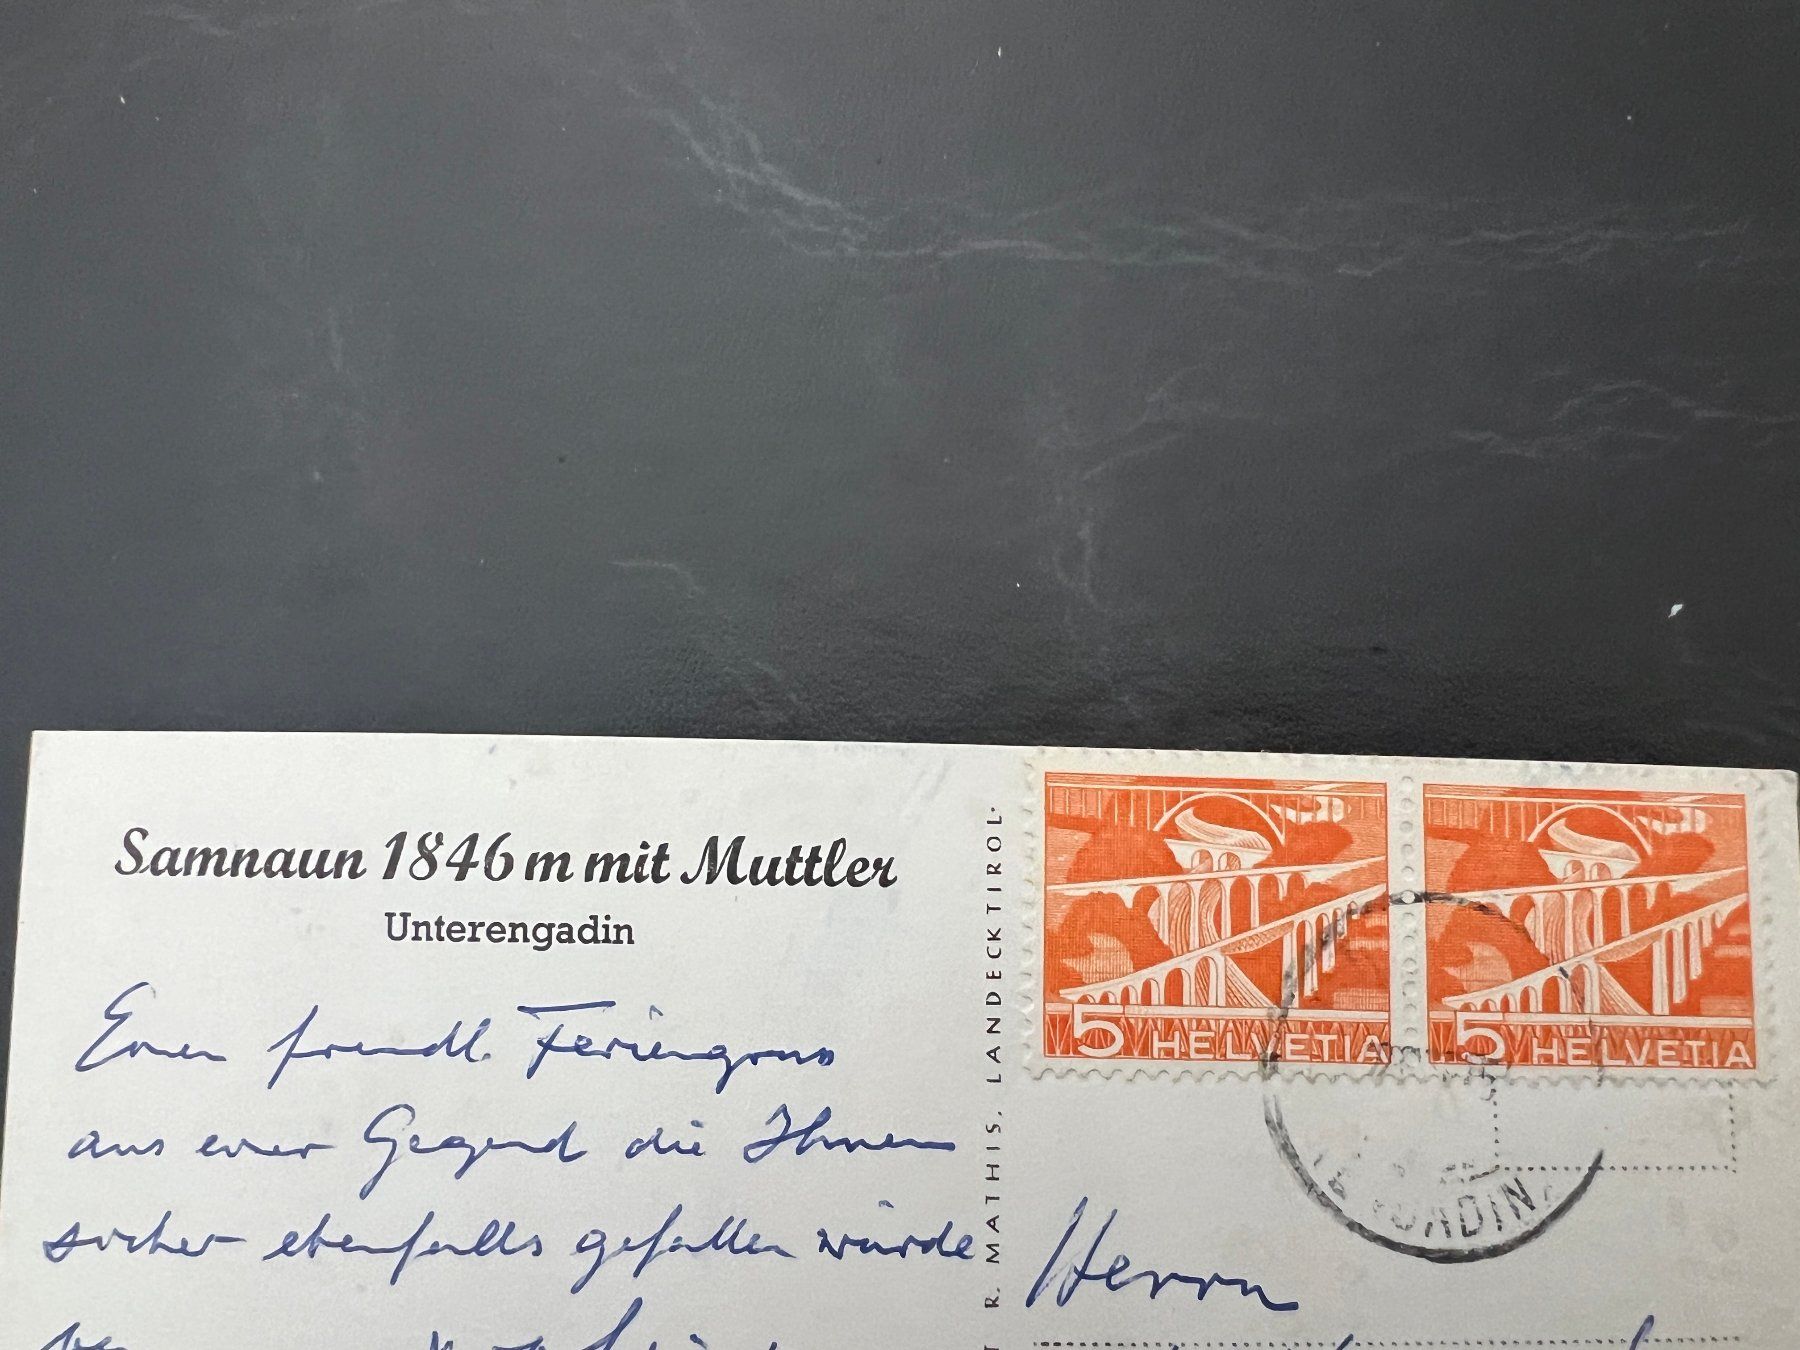 Samnaun 1846 m mit Muttler
Unterengadin
Einen freundl. Feriengruss
aus einer Gegend die Ihnen
sicher ebenfalls gefallen würde
R. MATHIS, LANDECK TIROL.
5 HELVETIA
5 HELVETIA
Herrn